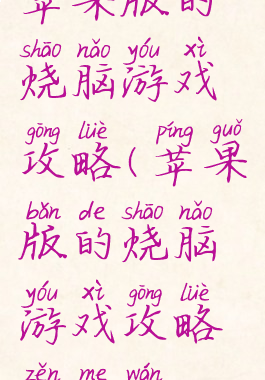 苹果版的
shāo nǎo yóu xì
烧脑游戏
gōng lüè píng guǒ
攻略(苹果
bǎn de shāo nǎo
版的烧脑
yóu xì gōng lüè
游戏攻略
zěn me wán